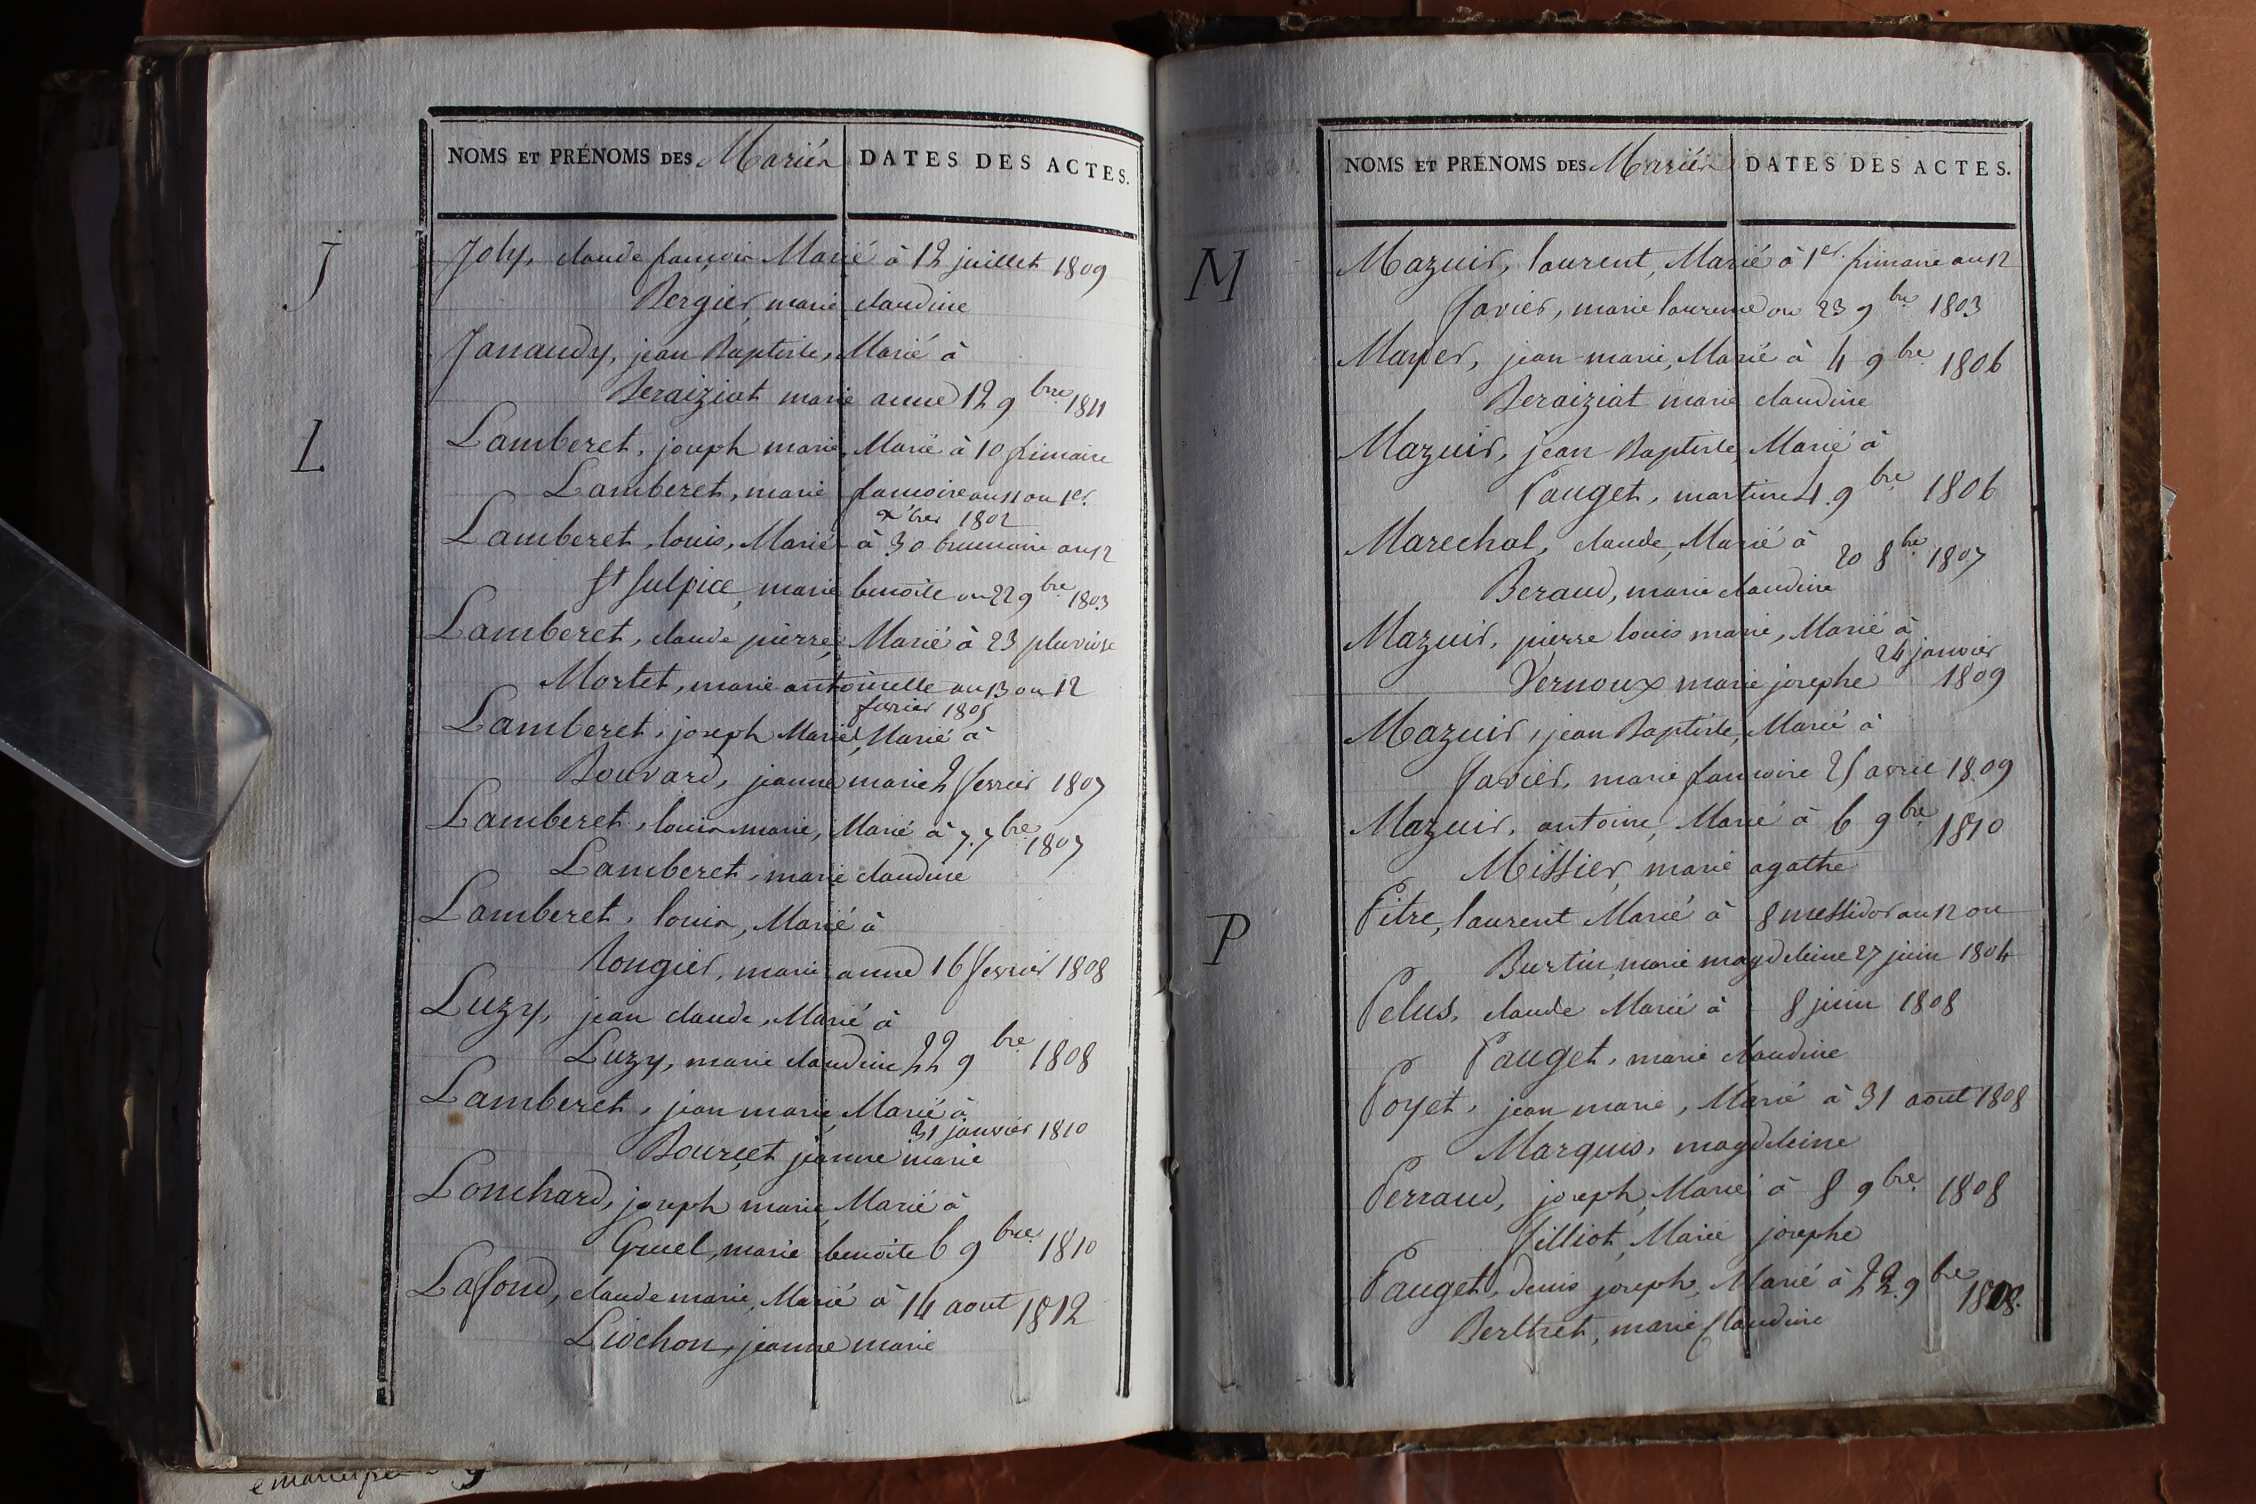 NOMS ET PRÉNOMS DES Mariés DATES DES ACTES.
J
Joly, claude françois Marié à 12 juillet 1809
Bergier, marie claudine
Janaudy, jean Baptiste, Marié à
Beraiziat marie anne 12 9bre 1811
L
Lamberet, joseph marie, Marié à 10 frimaire
Lamberet, marie francoise an 11 ou 1er
x bre 1802
Lamberet, louis, Marié à 30 brumaire an 12
St Sulpice, marie benoite ou 22 9bre 1803
Lamberet, claude pierre, Marié à 23 pluviose
Mortet, marie antoinette an 13 ou 12
fevrier 1805
Lamberet, joseph Marie, Marié à
Bouvard, jeanne marie 2 fevrier 1807
Lamberet, louis marie, Marié à 7. 7bre 1807
Lamberet, marie claudine
Lamberet, louis, Marié à
Rongier, marie anne 16 fevrier 1808
Luzy, jean claude, Marié à
Luzy, marie claudine 22 9bre 1808
Lamberet, jean marie, Marié à
31 janvier 1810
Bourcet jeanne marie
Lonchard, joseph marie, Marié à
Gruel, marie benoite 6 9bre 1810
Lafond, claude marie, Marié à 14 aout 1812
Liochon, jeanne marie
NOMS ET PRÉNOMS DES Mariés DATES DES ACTES.
M
Mazuir, laurent, Marié à 1er. frimaire an 12
Favier, marie laurence ou 23 9bre 1803
Mayer, jean-marie, Marié à 4 9bre 1806
Beraiziat marie claudine
Mazuir, jean Baptiste, Marié à
Pauget, martine 4. 9bre 1806
Marechal, claude, Marié à
20 8bre 1807
Beraud, marie claudine
Mazuir, pierre louis marie, Marié à
24 janvier
Vernoux marie josephe 1809
Mazuir, jean Baptiste, Marié à
Favier, marie francoise 25 avril 1809
Mazuir, antoine, Marié à 6 9bre 1810
Missier, marie agathe
P
Pitre, laurent Marié à 8 messidor an 12 ou
Burtin, marie magdeleine 27 juin 1804
Pelus, claude Marié à 8 juin 1808
Pauget, marie claudine
Poyet, jean marie, Marié à 31 aout 1808
Marquis, magdeleine
Perraud, joseph, Marié à 8 9bre 1808
Filliot, Marie josephe
Pauget, denis joseph, Marié à 22. 9bre 1808.
Berthet, marie Claudine